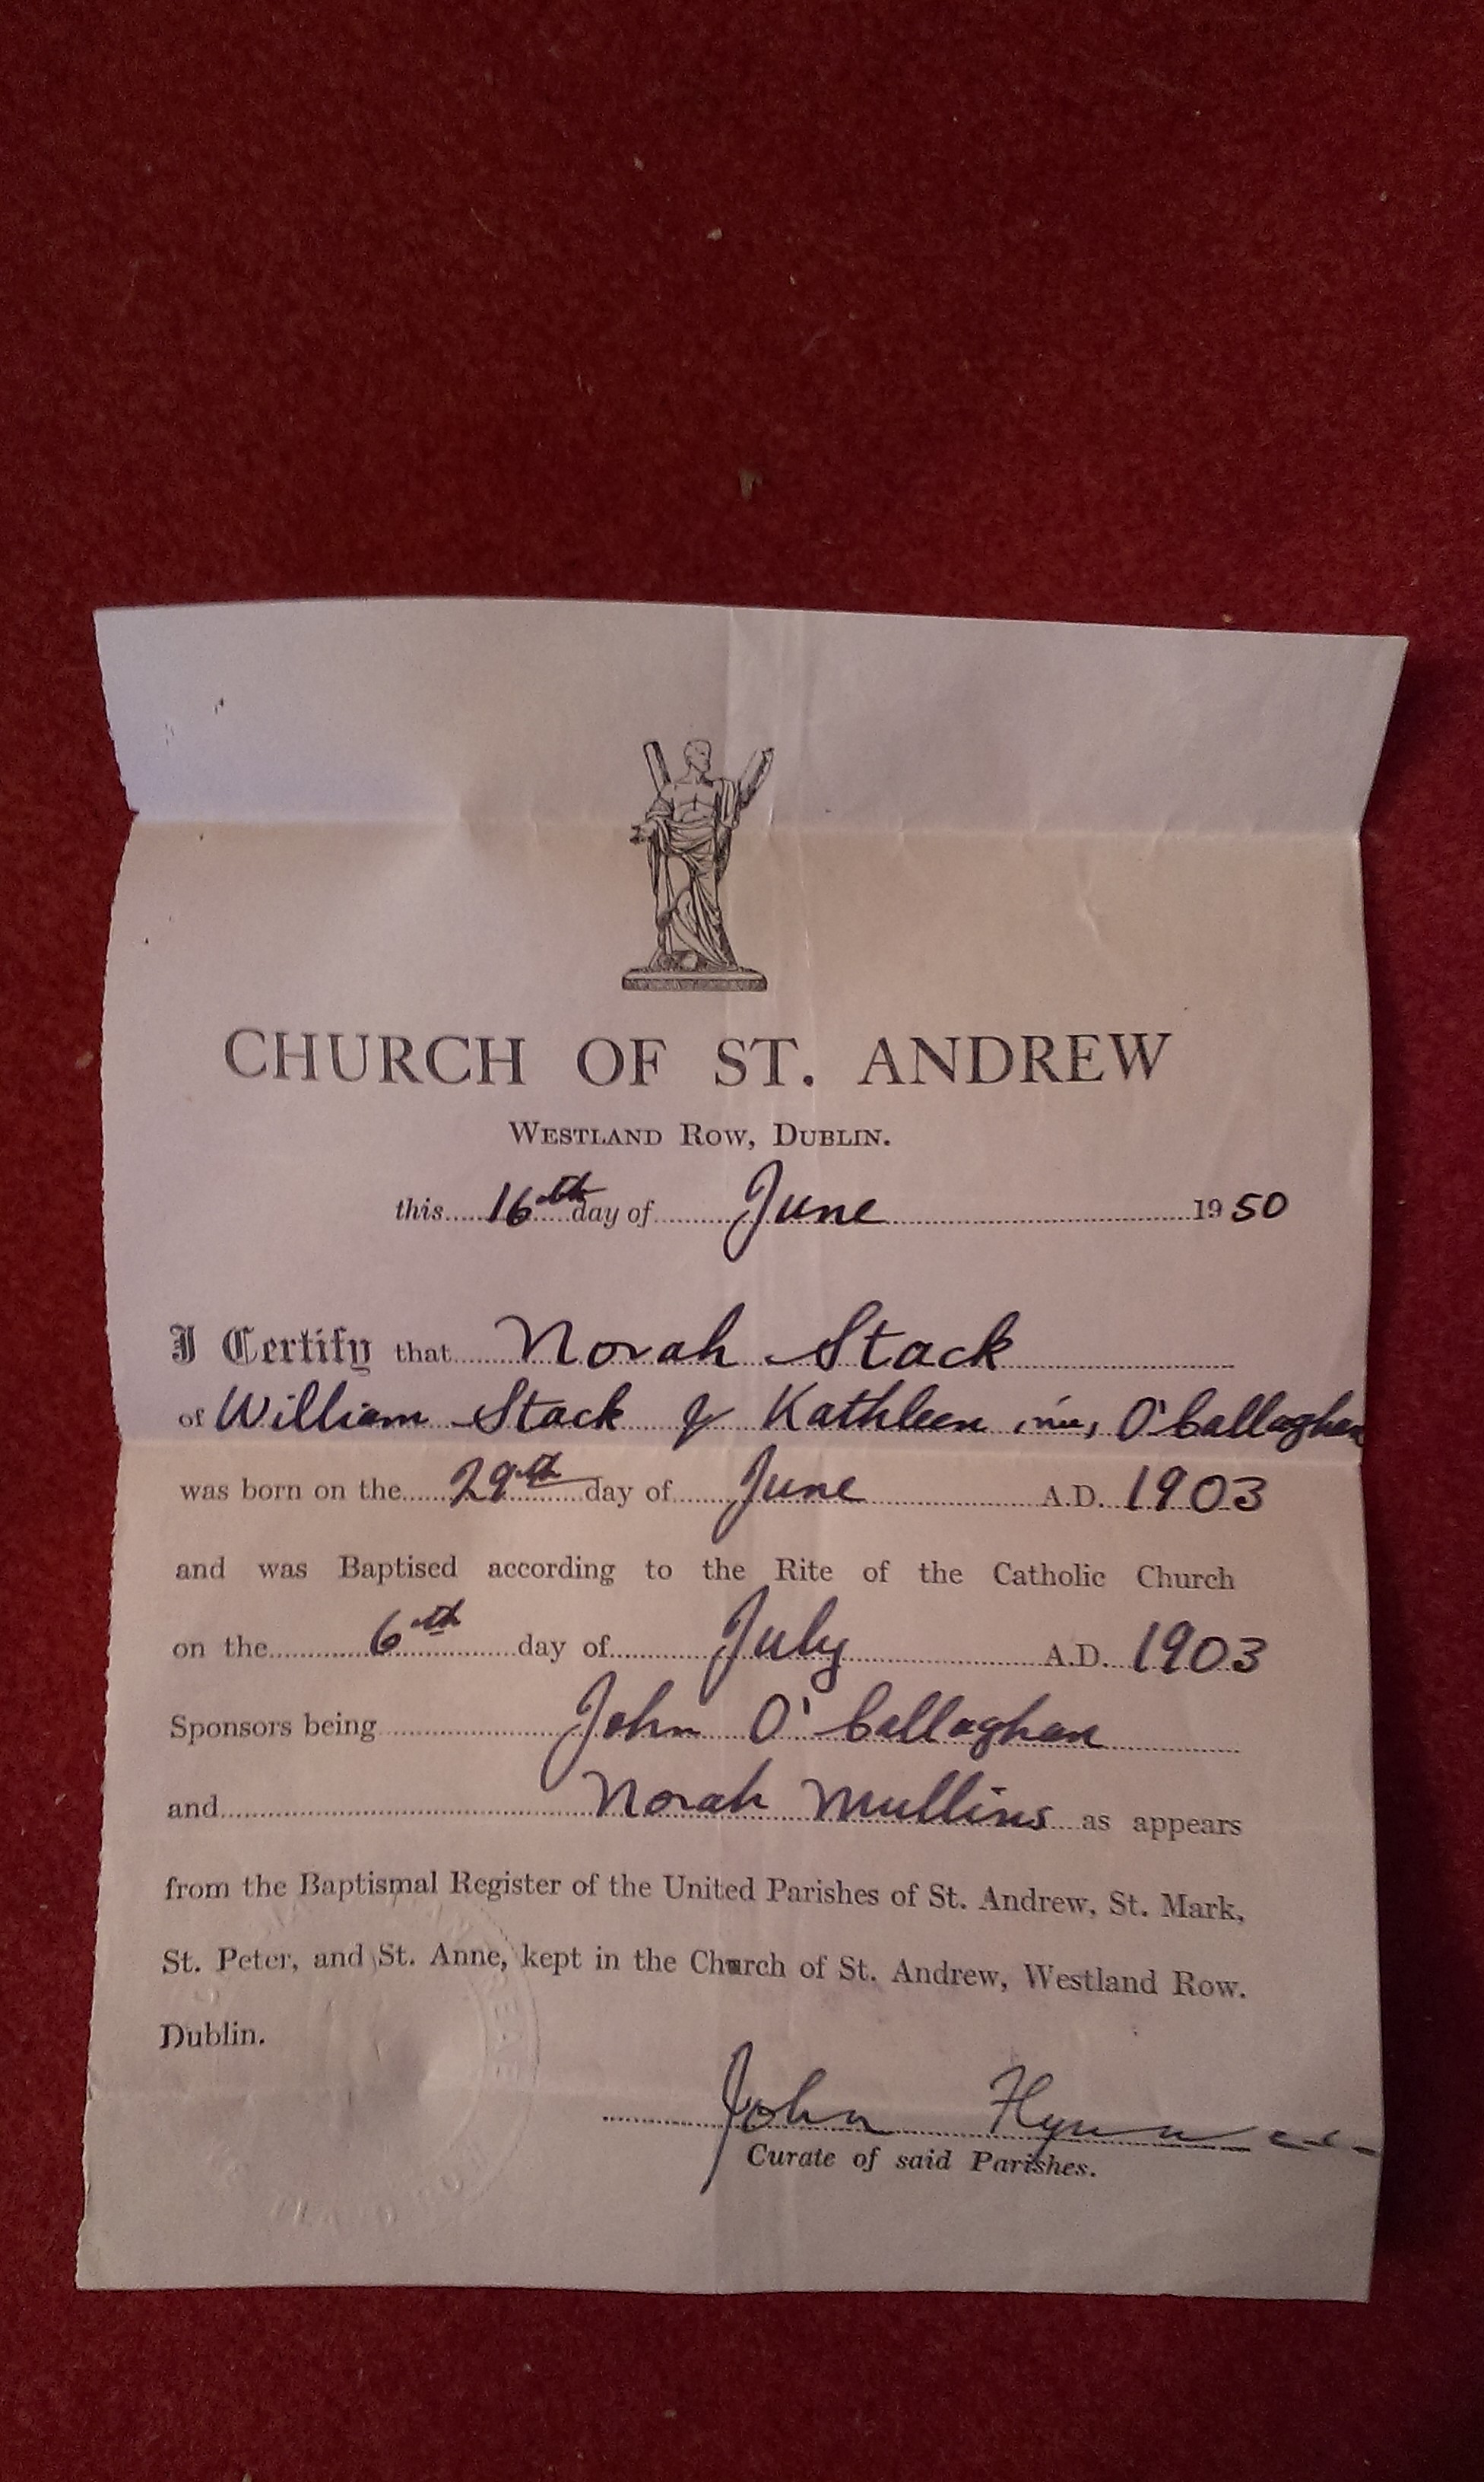 CHURCH OF ST. ANDREW
WESTLAND ROW, DUBLIN.
this 16th day of June 1950
I Certify that Norah Stack
of William Stack & Kathleen, née, O'Callaghan
was born on the 29th day of June A.D. 1903
and was Baptised according to the Rite of the Catholic Church
on the 6th day of July A.D. 1903
Sponsors being John O'Callaghan
and Norah Mullins as appears
from the Baptismal Register of the United Parishes of St. Andrew, St. Mark,
St. Peter, and St. Anne, kept in the Church of St. Andrew, Westland Row.
Dublin.
John
Curate of said Parishes.